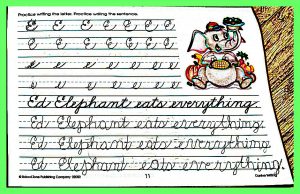 Practice writing the letter. Practice writing the sentence.
E E E E E E E
E E E E E E E
e e e e e e e
e e e e e e e
Ed Elephant eats everything.
Ed Elephant eats everything.
Ed Elephant eats everything.
Ed Elephant eats everything.
11
Cursive Writing